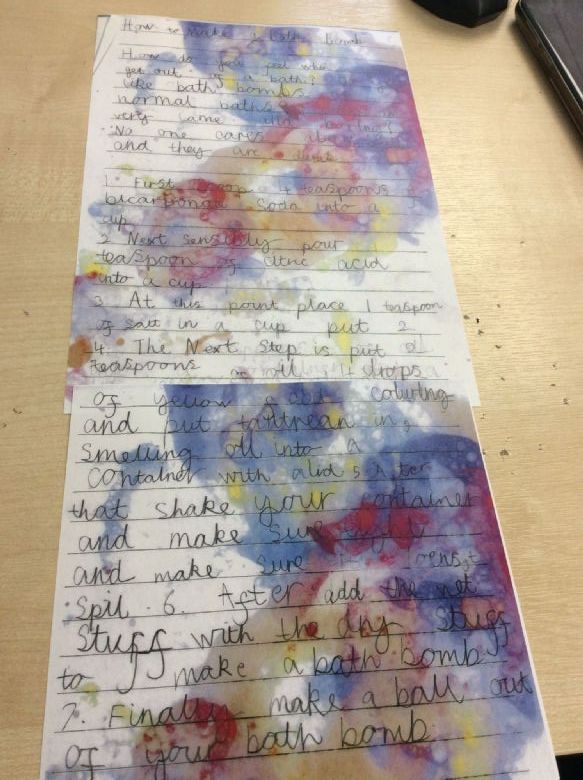 How to make a bath bomb
How do you feel when
get out of a bath?
like bath bombs
normal baths
very lame and boring!
No one cares
and they are
1 First scoop 4 teaspoons of
bicarbonate Soda into a
cup
2 Next Sensibly pour 1
teaspoon of citric acid
into a cup
3 At this point place 1 teaspoon
of salt in a cup put 2
4. The Next Step is put 2
teaspoons oil 4 drops
of yellow colouring
and put in,
Smelling oil into a
container with a lid 5 After
that shake your container
and make sure
and make sure it
Spil . 6. After add the wet
Stuff with the dry Stuff
to make a bath bomb
7. Finally make a ball out
of your bath bomb